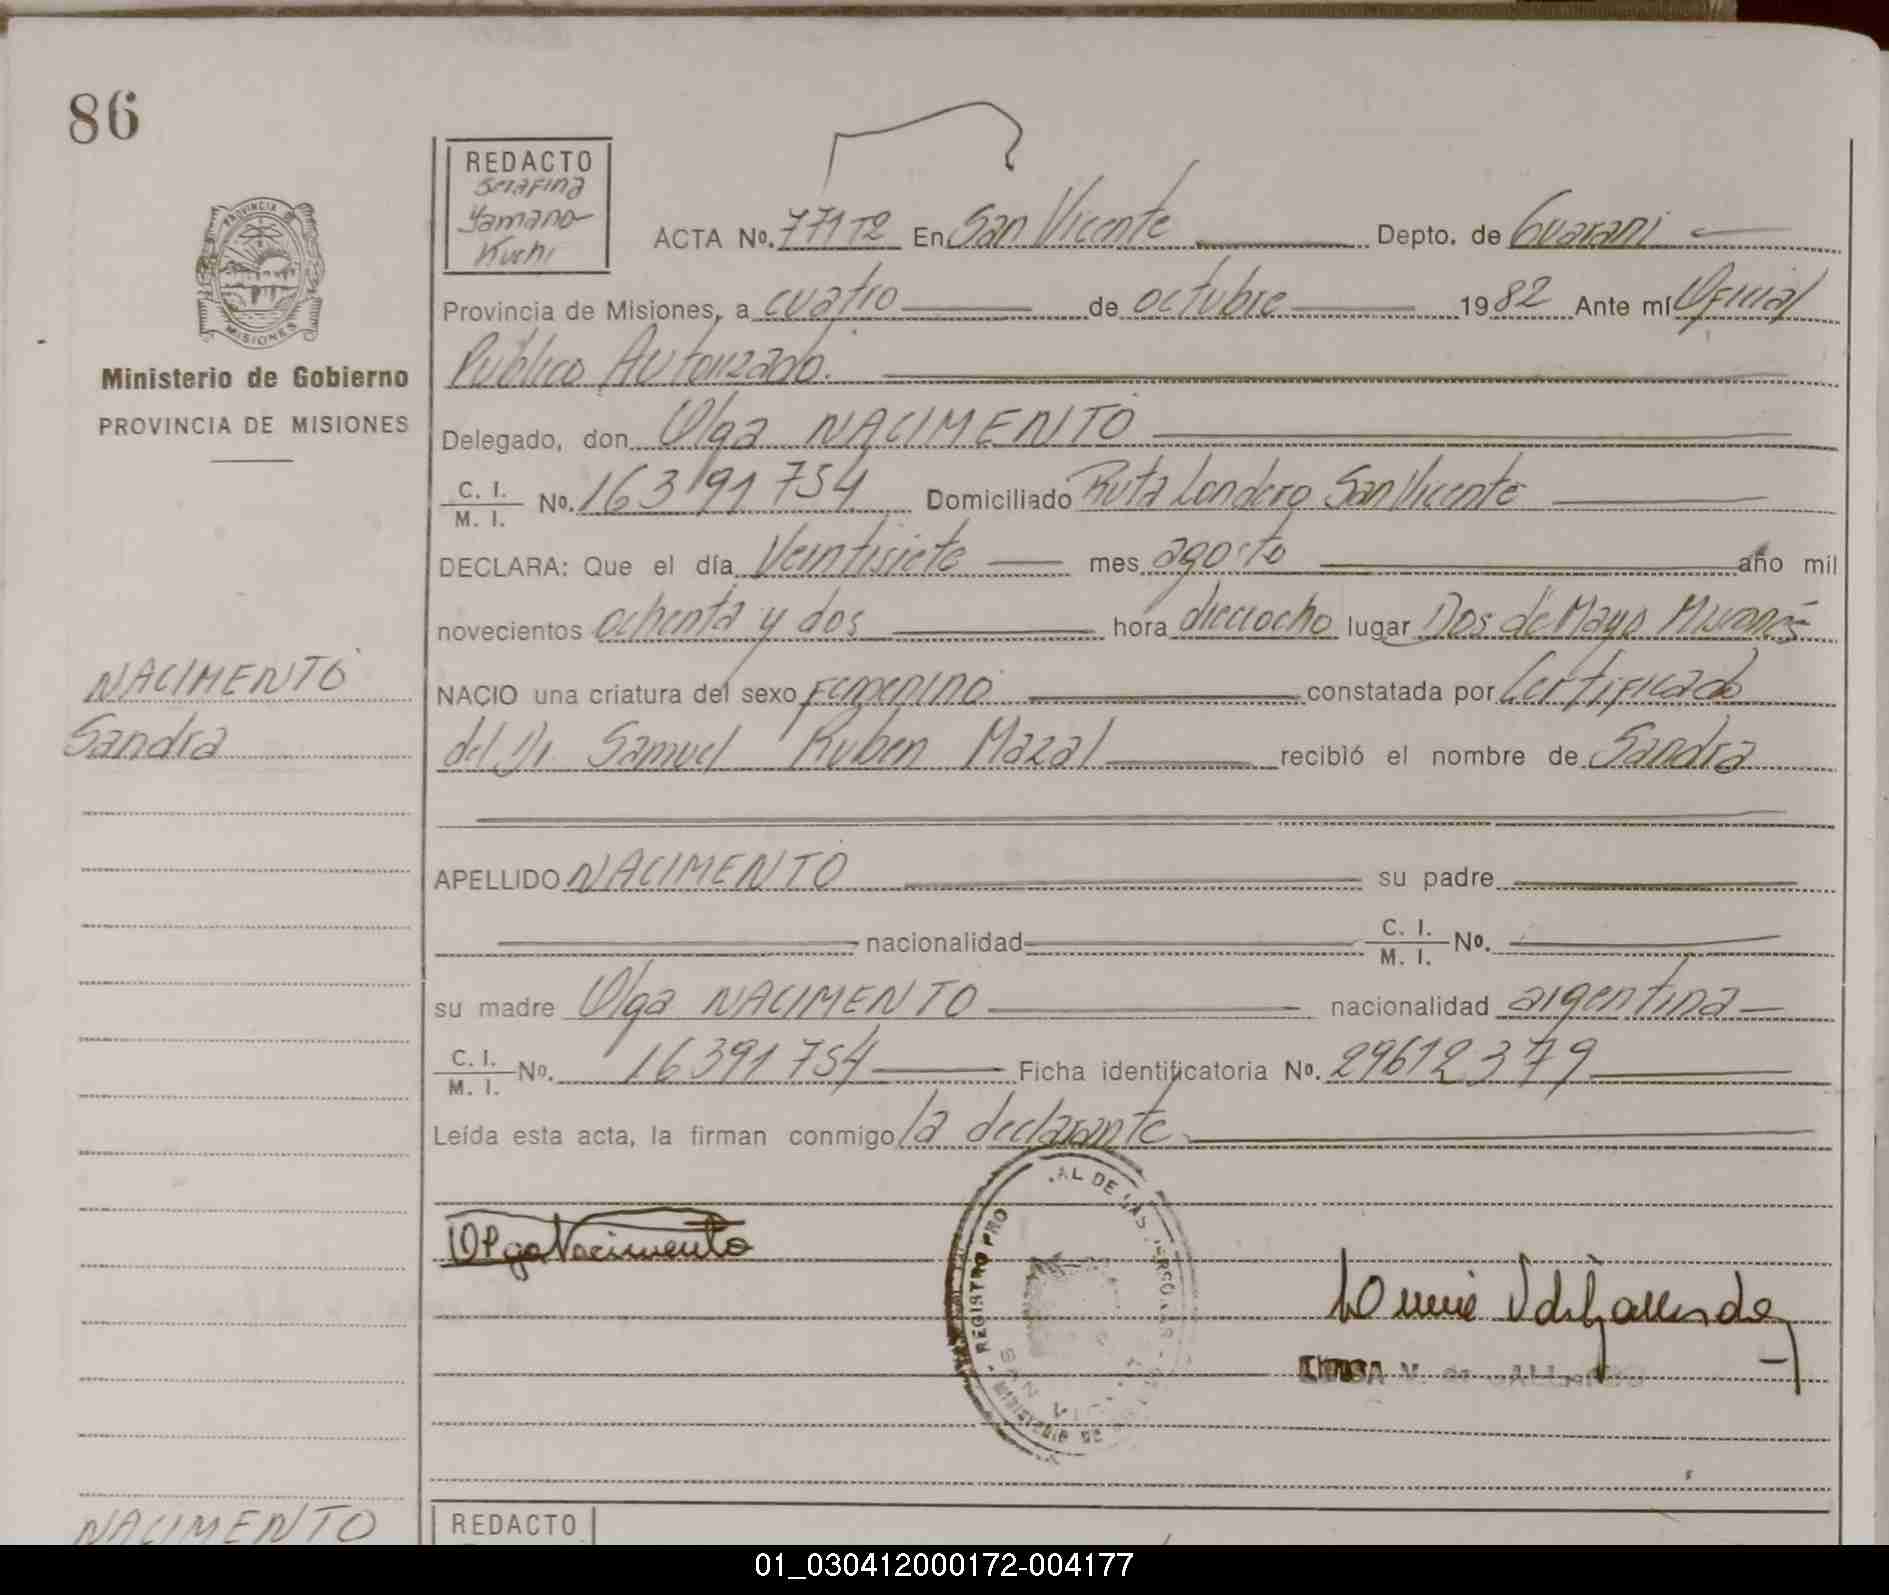 86
REDACTO
Serafina
Yamano
Kuchi
PROVINCIA DE
MISIONES
Ministerio de Gobierno
PROVINCIA DE MISIONES
ACTA No. 771 T2 En San Vicente Depto. de Guarani
Provincia de Misiones, a cuatro de octubre 1982 Ante mí Oficial
Público Autorizado.
Delegado, don Olga NACIMENTO
C. I. M. I. No. 16391754 Domiciliado Ruta Londero San Vicente
DECLARA: Que el día Veintisiete mes agosto año mil
novecientos ochenta y dos hora dieciocho lugar Dos de Mayo Misiones
NACIO una criatura del sexo Femenino constatada por Certificado
del Dr. Samuel Ruben Mazal recibió el nombre de Sandra
NACIMENTO
Sandra
APELLIDO NACIMENTO su padre
nacionalidad C. I. M. I. No.
su madre Olga NACIMENTO nacionalidad argentina
C. I. M. I. No. 16391754 Ficha identificatoria No. 29612379
Leída esta acta, la firman conmigo la declarante
Olga Nacimento
REGISTRO PRO AL DE LAS PERSONAS
SAN
MINISTERIO DE
V. de GALLARDO
NACIMENTO
REDACTO
01_030412000172-004177